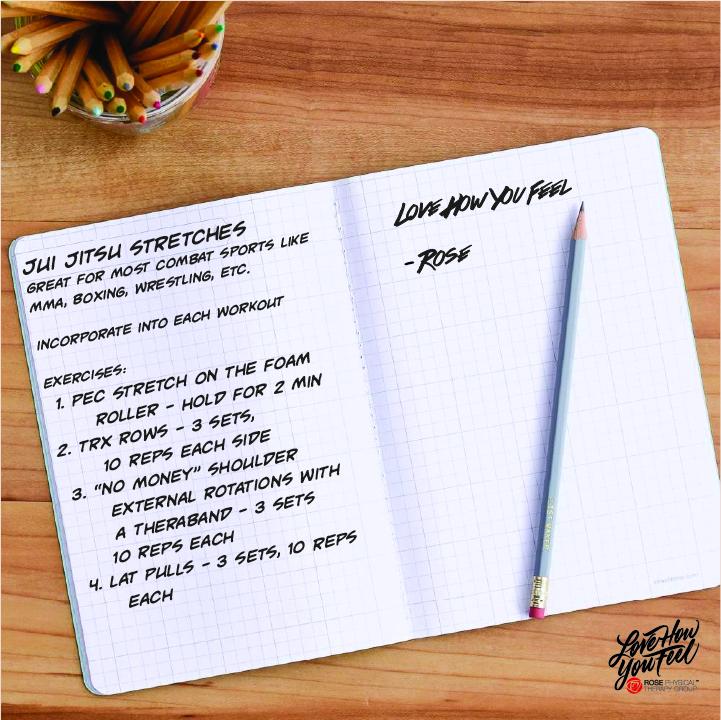 JUI JITSU STRETCHES
GREAT FOR MOST COMBAT SPORTS LIKE
MMA, BOXING, WRESTLING, ETC.
INCORPORATE INTO EACH WORKOUT
EXERCISES:
1. PEC STRETCH ON THE FOAM
ROLLER - HOLD FOR 2 MIN
2. TRX ROWS - 3 SETS,
10 REPS EACH SIDE
3. "NO MONEY" SHOULDER
EXTERNAL ROTATIONS WITH
A THERABAND - 3 SETS
10 REPS EACH
4. LAT PULLS - 3 SETS, 10 REPS
EACH
LOVE HOW YOU FEEL
- ROSE
Love How
You Feel
ROSE PHYSICAL™
THERAPY GROUP